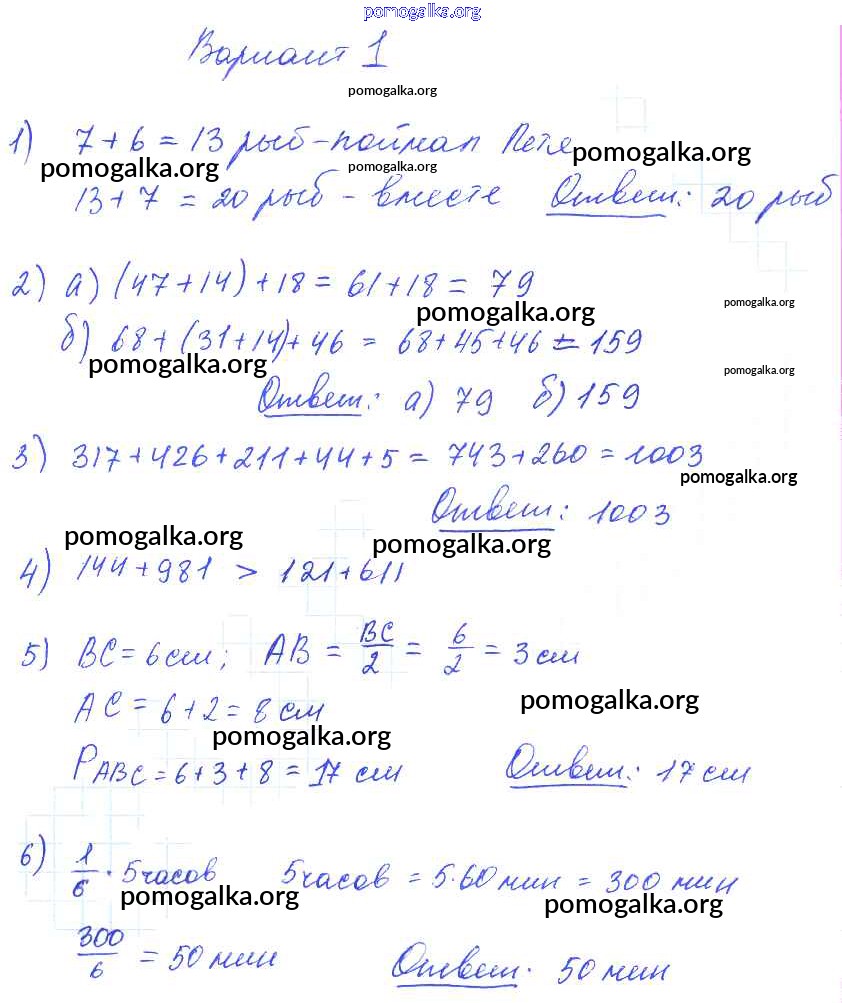 pomogalka.org
Вариант 1
pomogalka.org
1) 7 + 6 = 13 рыб - поймал Петя
pomogalka.org pomogalka.org pomogalka.org
13 + 7 = 20 рыб - вместе Ответ: 20 рыб
2) а) (47 + 14) + 18 = 61 + 18 = 79
pomogalka.org pomogalka.org
б) 68 + (31 + 14) + 46 = 68 + 45 + 46 = 159
pomogalka.org pomogalka.org
Ответ: а) 79 б) 159
3) 317 + 426 + 211 + 44 + 5 = 743 + 260 = 1003
pomogalka.org
Ответ: 1003
pomogalka.org pomogalka.org
4) 144 + 981 > 121 + 611
5) BC = 6 см; AB = BC/2 = 6/2 = 3 см
AC = 6 + 2 = 8 см pomogalka.org
pomogalka.org
P ABC = 6 + 3 + 8 = 17 см Ответ: 17 см
6) 1/6 · 5 часов 5 часов = 5 · 60 мин = 300 мин
pomogalka.org pomogalka.org
300/6 = 50 мин Ответ: 50 мин